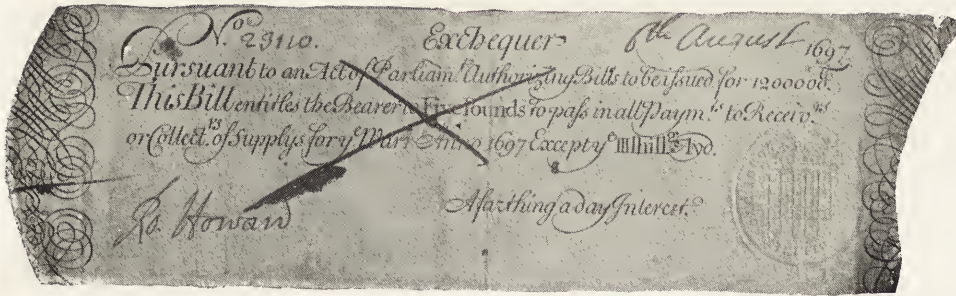 N.º 23110. Exchequer 6th August 1697
Pursuant to an Act of Parliam.t Authorizing Bills to be issued for 1200000£.
This Bill entitles the Bearer to Five Pounds To pass in all Paym.ts to Receiv.rs
or Collect.rs of Supplys for ye Warr Anno 1697 Except ye IIII shill.gs Ayd.
Ro. Howard A farthing a day Interest.